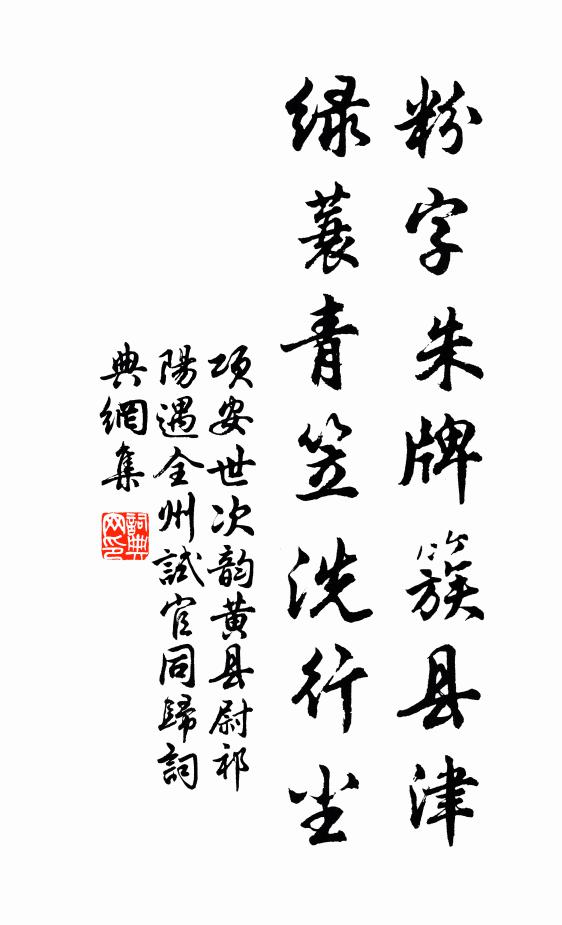 粉字朱牌簇县津
绿蓑青笠洗行尘
项安世次韵黄县尉祁
陽遇全州試官同歸詞
典網集
詞典網印